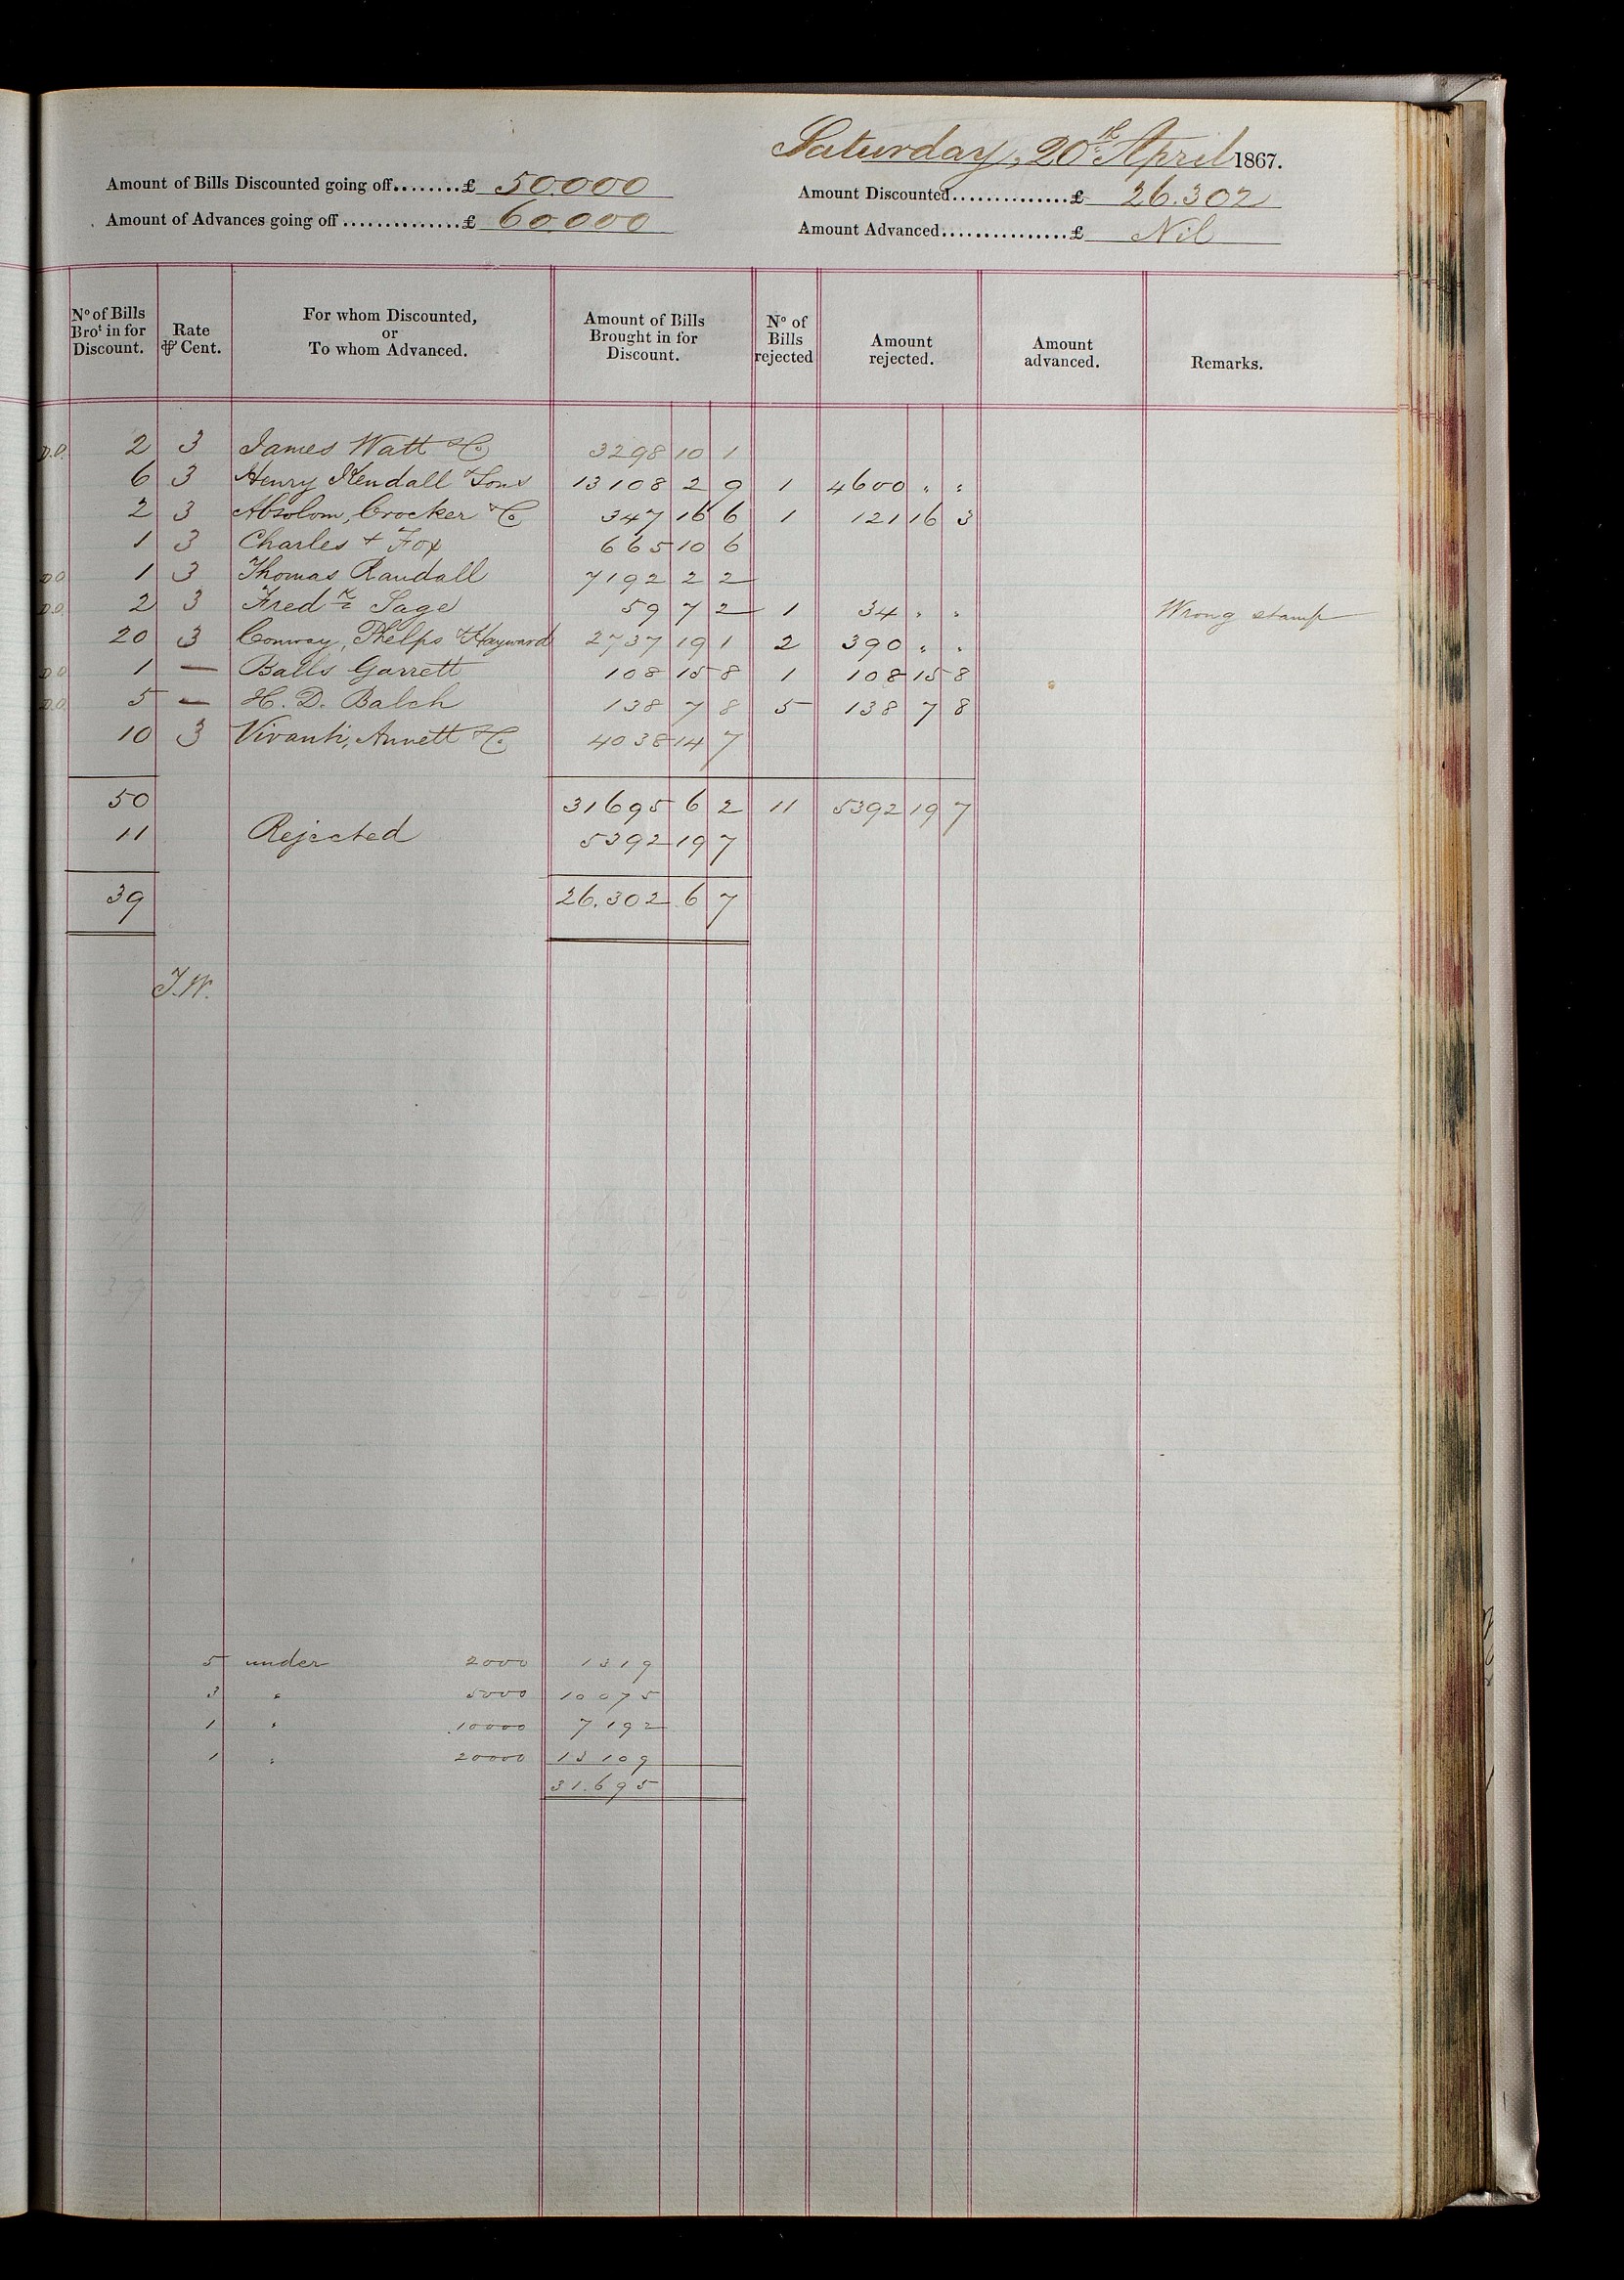 Saturday, 20th April 1867.
Amount of Bills Discounted going off........£ 50.000
Amount Discounted..............£ 26.302
Amount of Advances going off..............£ 60.000
Amount Advanced................£ Nil
No of Bills Brot in for Discount. Rate ⅌ Cent. For whom Discounted, or To whom Advanced. Amount of Bills Brought in for Discount. No of Bills rejected Amount rejected. Amount advanced. Remarks.
D.O. 2 3 James Watt & Co 3298 10 1
6 3 Henry Kendall & Sons 13108 2 9 1 4600 " "
2 3 Absolom, Crocker & Co 347 16 6 1 121 16 3
1 3 Charles & Fox 665 10 6
D.O. 1 3 Thomas Randall 7192 2 2
D.O. 2 3 Fredk Sage 59 7 2 1 34 " " Wrong stamp
20 3 Conway, Phelps & Hayward 2737 19 1 2 390 " "
D.O. 1 — Balls Garrett 108 15 8 1 108 15 8
D.O. 5 — H. D. Balch 138 7 8 5 138 7 8
10 3 Vivanti, Annett & Co 4038 14 7
50 31695 6 2 11 5392 19 7
11 Rejected 5392 19 7
39 26.302 6 7
J.W.
5 under 2000 1319
3 " 5000 10075
1 " 10000 7192
1 " 20000 13109
31.695